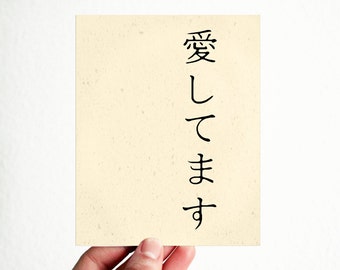 愛してます